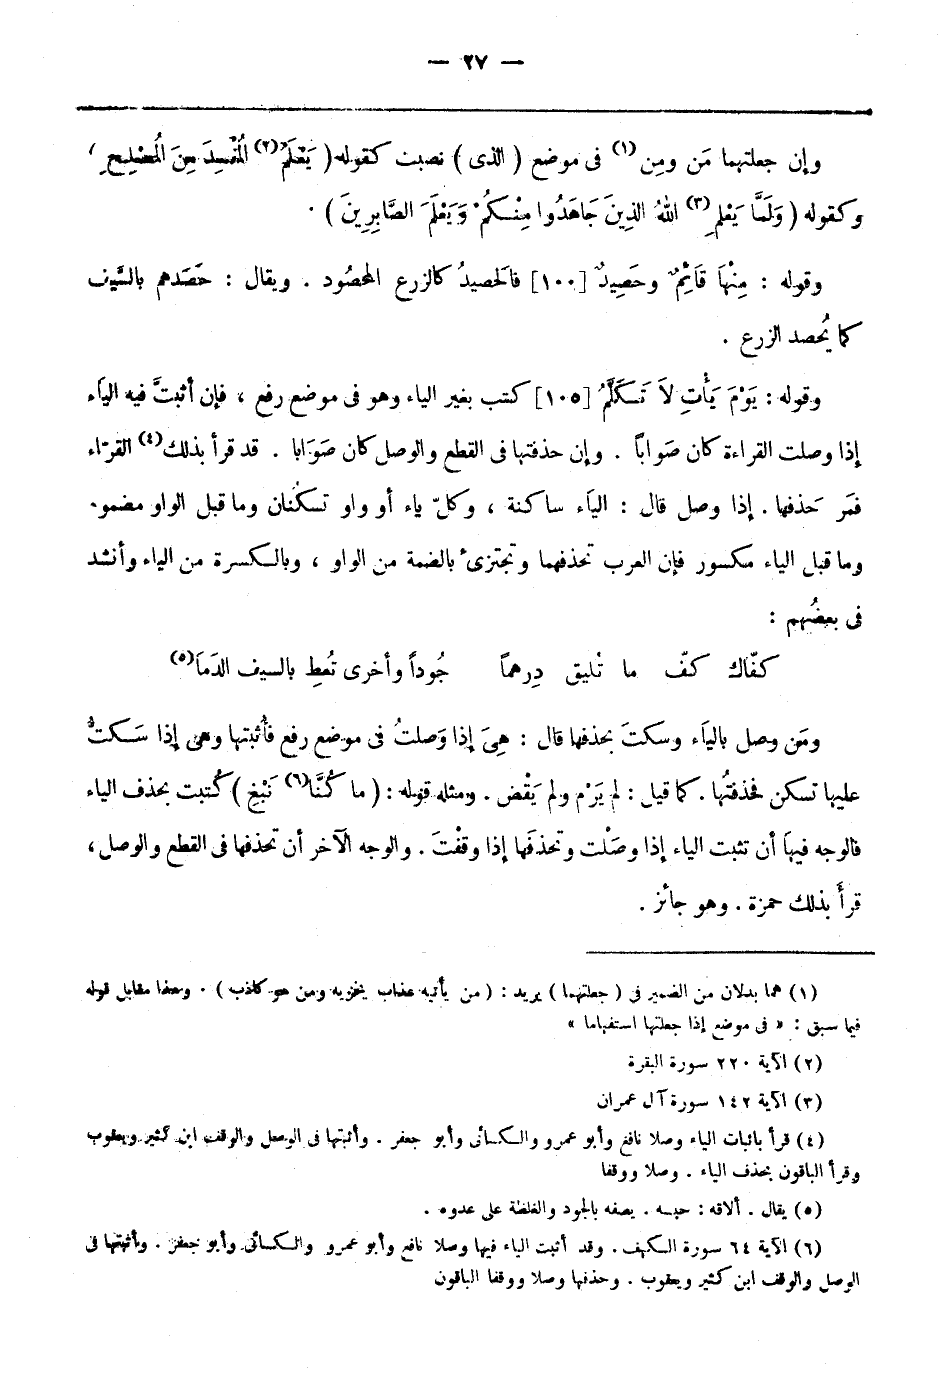 — ٢٧ —
وإن جعلتهما مَن ومِن (١) فى موضع ( الذى ) نصبت كقوله ( يَعْلَمُ (٢) الْمُفْسِدَ مِنَ الْمُصْلِحِ )
وكقوله ( وَلَمَّا يَعْلمِ (٣) اللهُ الذِينَ جَاهَدُوا مِنْكُمْ وَيَعْلَمَ الصَّابِرِينَ ) .
وقوله : مِنْهَا قَائِمٌ وحَصِيدٌ [١٠٠] فالَحصيدُ كالزرع المحصُود . ويقال : حَصَدهم بالسَّيف
كما يُحصد الزرع .
وقوله : يَوْمَ يَأْتِ لاَ تَكَلَّمُ [١٠٥] كتب بغير الياء وهو فى موضع رفع ، فإن أثبتَّ فيه اليَاء
إذا وصلت القراءة كان صَواباً . وإن حذفتها فى القطع والوصل كان صَوَابا . قد قرأ بذلك (٤) القرّاء
فمَن حَذفها . إذا وصل قال : اليَاء ساكنة ، وكلّ ياء أو واو تسكُنان وما قبل الواو مضموم
وما قبل الياء مكسور فإن العرب تحذفهما وتجتزئ بالضمة من الواو ، وبالكسرة من الياء وأنشد
فى بعضُهم :
كفّاك كفّ ما تُليق دِرهماً جُوداً وأخرى تُعطِ بالسيف الدَمَا (٥)
ومَن وصل باليَاء وسكتَ بحذفها قال : هِىَ إذا وَصلتُ فى موضع رفع فأُثبتها وهى إذا سَكتُّ
عليها تسكن فحذفتُها . كما قيل : لم يَرْمِ ولم يَقْض . ومثله قوله : ( ما كُنَّا (٦) نَبْغِ ) كُتبت بحذف الياء
فالوجه فيهَا أن تثبت الياء إذا وصَلْت وتحذفَها إذا وقفْتَ . والوجه الآخر أن تحذفها فى القطع والوصل ،
قرأَ بذلك حمزة . وهو جائز .
(١) هما بدلان من الضمير فى ( جعلتهما ) يريد : ( من يأتيه عذاب يخزيه ومن هو كاذب ) . وهذا مقابل قوله
فيما سبق : « فى موضع إذا جعلتها استفهاما »
(٢) الآية ٢٢٠ سورة البقرة
(٣) الآية ١٤٢ سورة آل عمران
(٤) قرأ باثبات الياء وصلا نافع وأبو عمرو والكسائى وأبو جعفر . وأثبتها فى الوصل والوقف ابن كثير ويعقوب
وقرأ الباقون بحذف الياء . وصلا ووقفا
(٥) يقال . ألاقه : حبسه . يصفه بالجود والغلظة على عدوه .
(٦) الآية ٦٤ سورة الكهف . وقد أثبت الياء فيها وصلا نافع وأبو عمرو والكسائى وأبو جعفر . وأثبتها فى
الوصل والوقف ابن كثير ويعقوب . وحذفها وصلا ووقفا الباقون